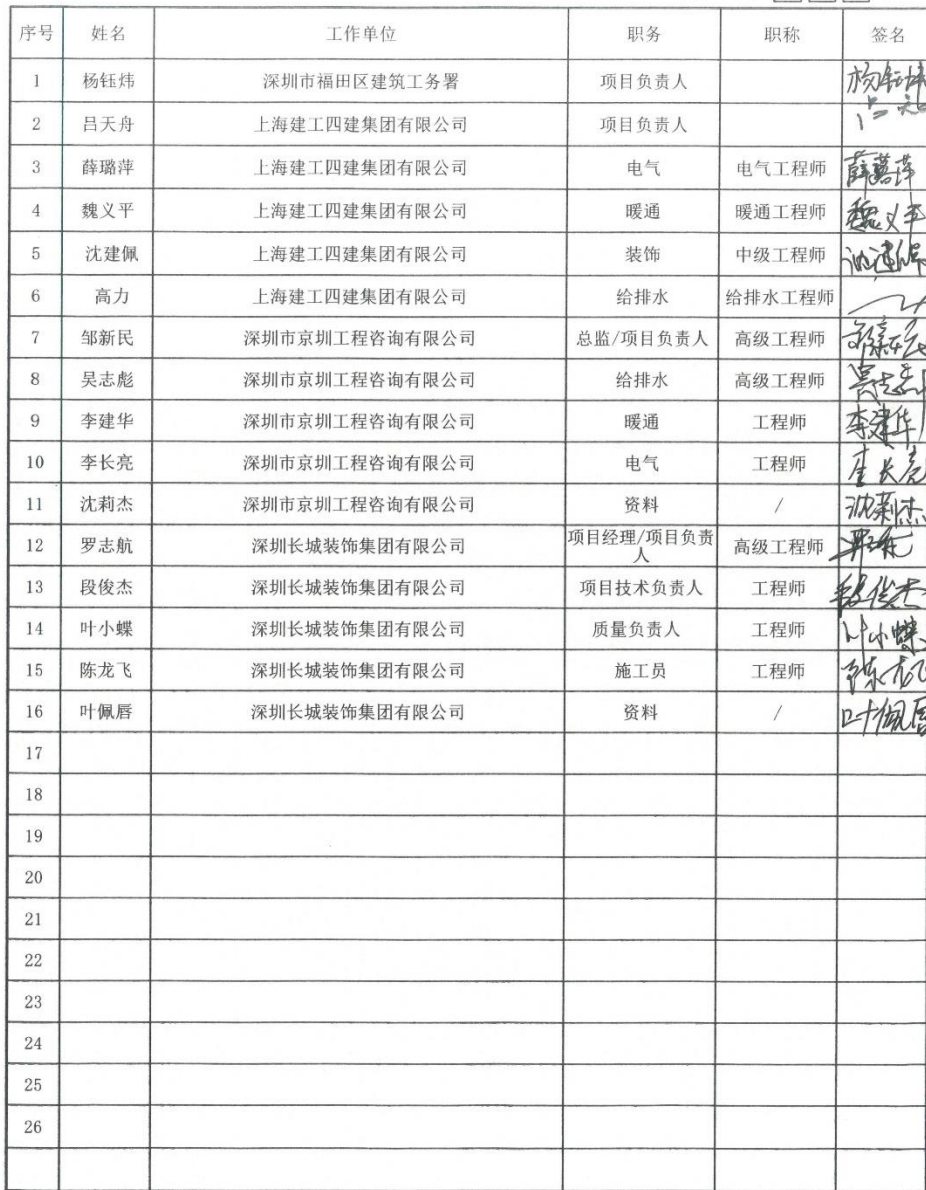 序号 姓名 工作单位 职务 职称 签名
1 杨钰炜 深圳市福田区建筑工务署 项目负责人 杨钰炜
2 吕天舟 上海建工四建集团有限公司 项目负责人
3 薛璐萍 上海建工四建集团有限公司 电气 电气工程师 薛璐萍
4 魏义平 上海建工四建集团有限公司 暖通 暖通工程师 魏义平
5 沈建佩 上海建工四建集团有限公司 装饰 中级工程师 沈建佩
6 高力 上海建工四建集团有限公司 给排水 给排水工程师
7 邹新民 深圳市京圳工程咨询有限公司 总监/项目负责人 高级工程师 邹新民
8 吴志彪 深圳市京圳工程咨询有限公司 给排水 高级工程师 吴志彪
9 李建华 深圳市京圳工程咨询有限公司 暖通 工程师 李建华
10 李长亮 深圳市京圳工程咨询有限公司 电气 工程师 李长亮
11 沈莉杰 深圳市京圳工程咨询有限公司 资料 / 沈莉杰
12 罗志航 深圳长城装饰集团有限公司 项目经理/项目负责
人 高级工程师
13 段俊杰 深圳长城装饰集团有限公司 项目技术负责人 工程师 段俊杰
14 叶小蝶 深圳长城装饰集团有限公司 质量负责人 工程师 叶小蝶
15 陈龙飞 深圳长城装饰集团有限公司 施工员 工程师 陈龙飞
16 叶佩唇 深圳长城装饰集团有限公司 资料 / 叶佩唇
17
18
19
20
21
22
23
24
25
26